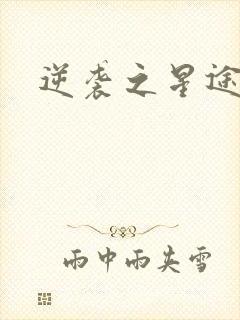 逆袭之星途
雨中雨夹雪